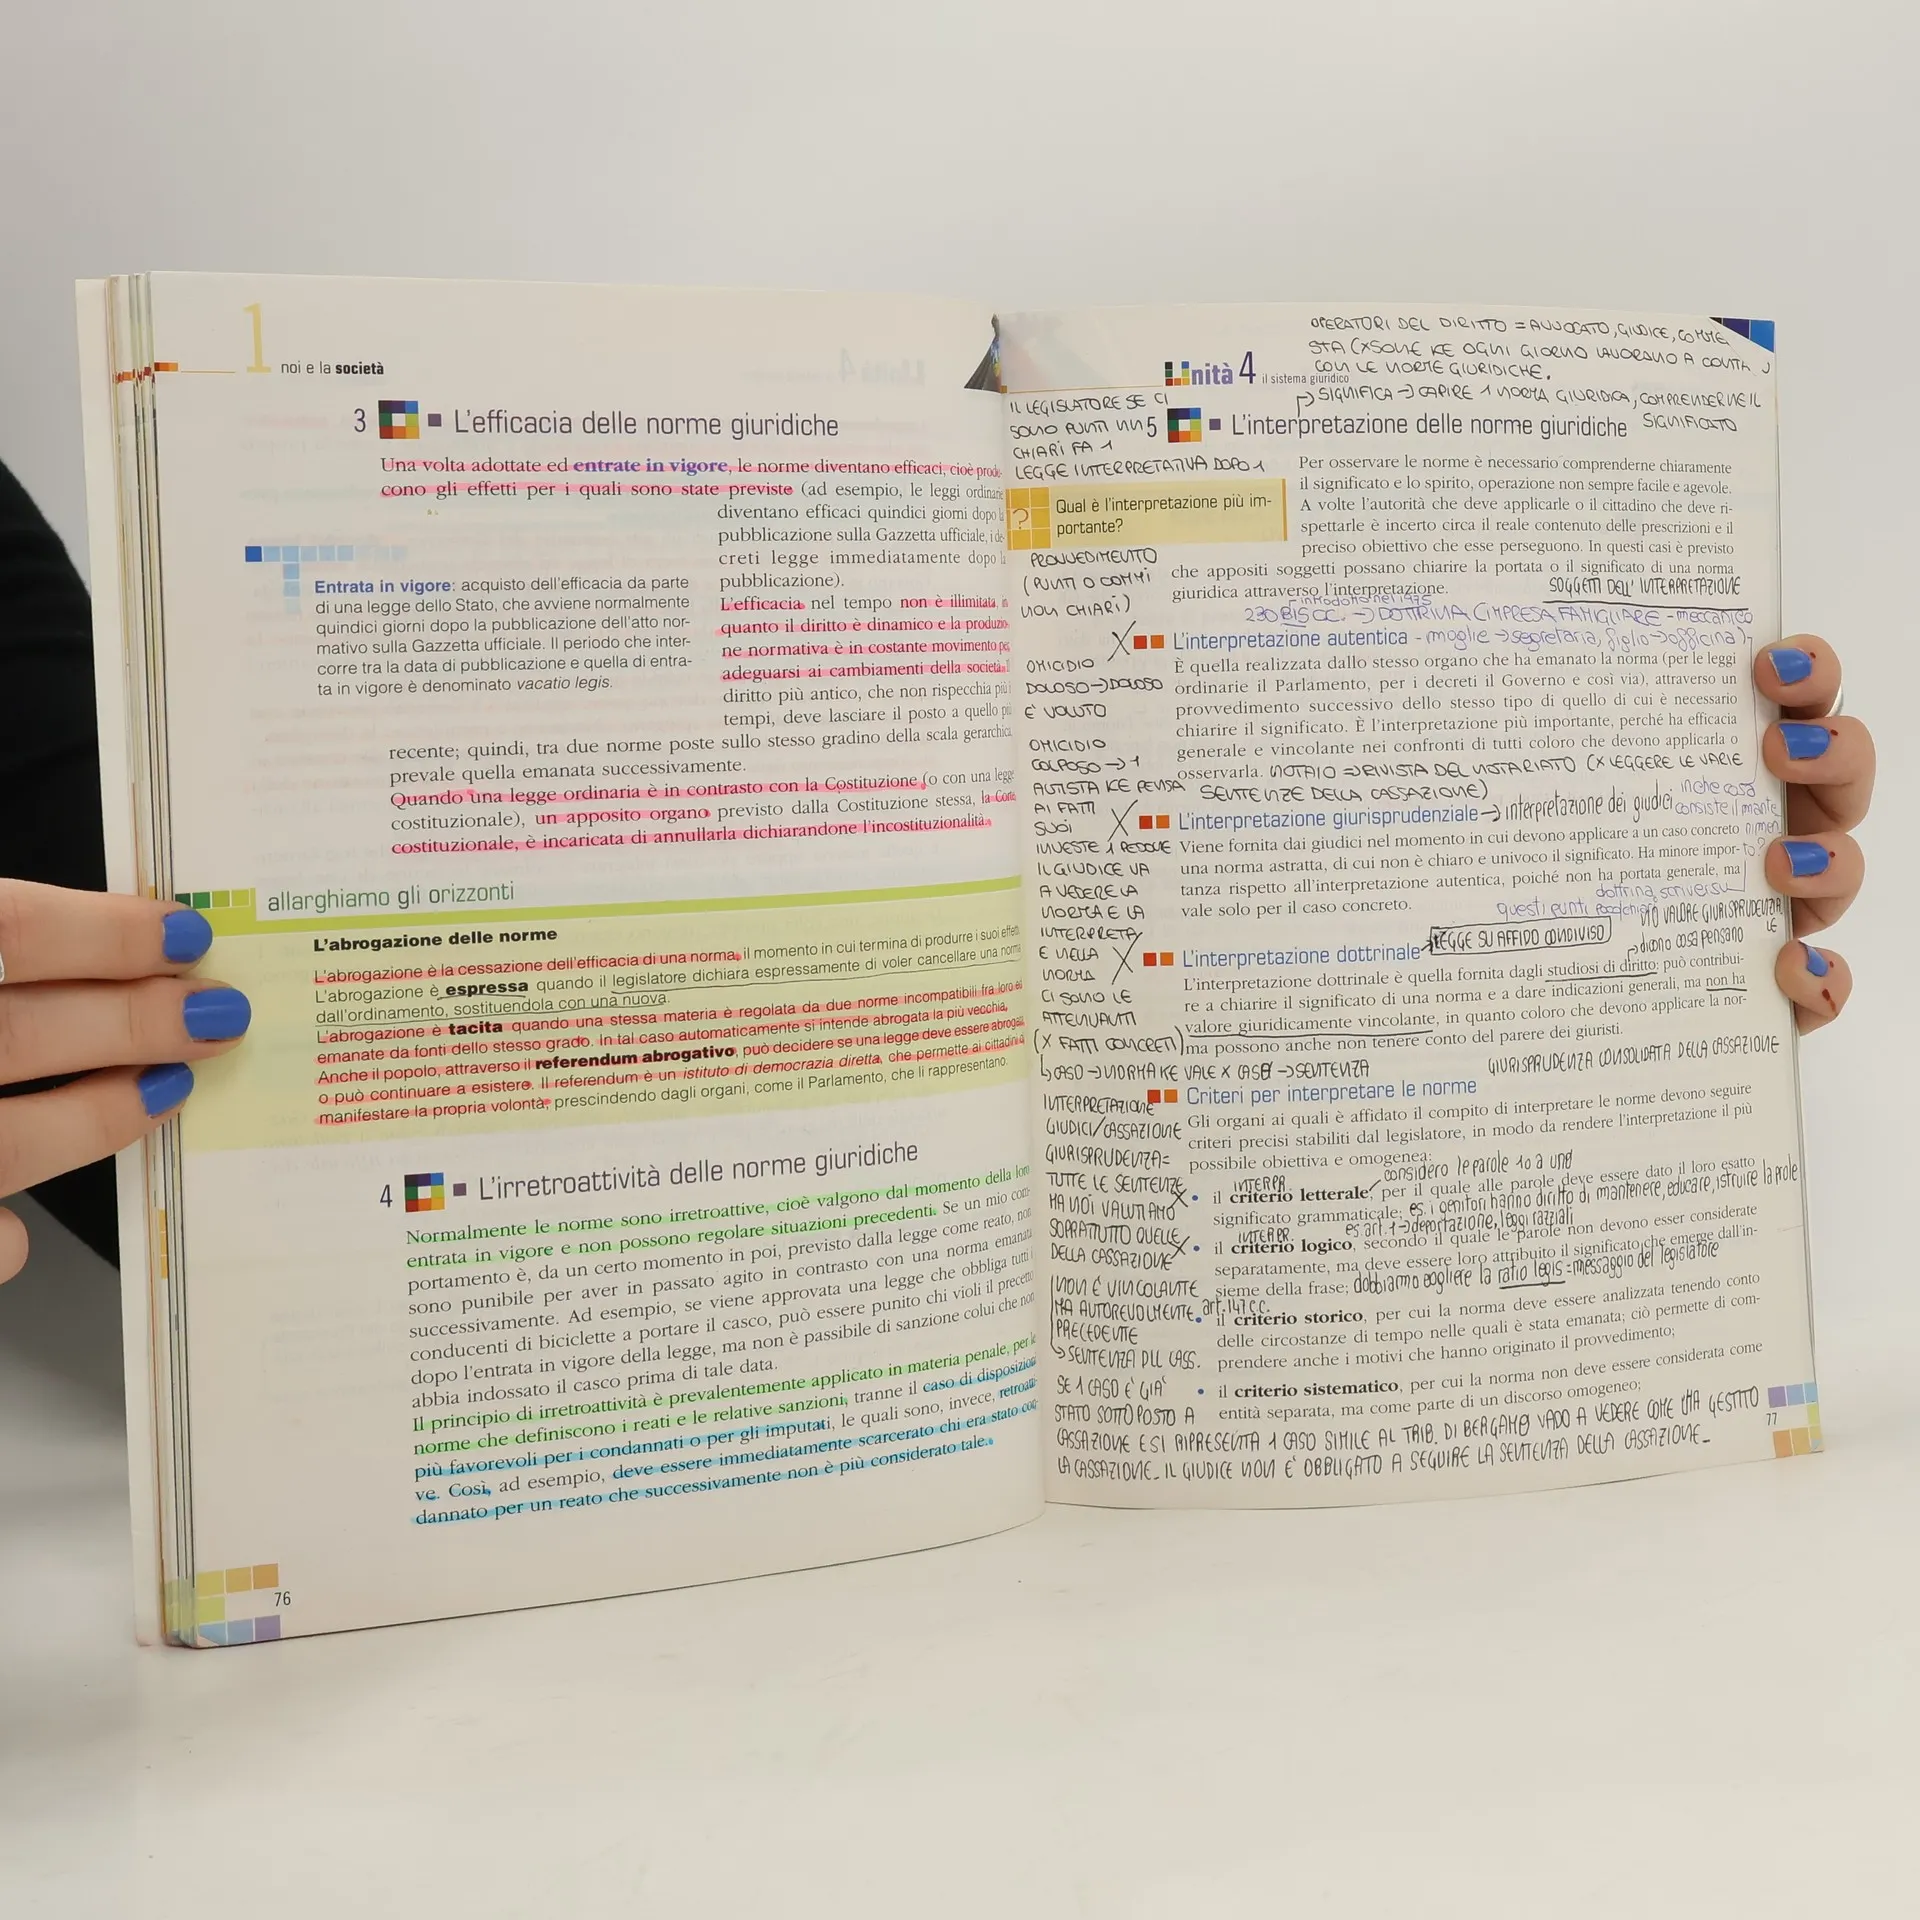 1
noi e la società
3 L'efficacia delle norme giuridiche
Una volta adottate ed entrate in vigore, le norme diventano efficaci, cioè produ-
cono gli effetti per i quali sono state previste (ad esempio, le leggi ordinarie
diventano efficaci quindici giorni dopo la
pubblicazione sulla Gazzetta ufficiale, i de-
creti legge immediatamente dopo la
pubblicazione).
Entrata in vigore: acquisto dell'efficacia da parte
di una legge dello Stato, che avviene normalmente
quindici giorni dopo la pubblicazione dell'atto nor-
mativo sulla Gazzetta ufficiale. Il periodo che inter-
corre tra la data di pubblicazione e quella di entra-
ta in vigore è denominato vacatio legis.
L'efficacia nel tempo non è illimitata, in
quanto il diritto è dinamico e la produzio-
ne normativa è in costante movimento per
adeguarsi ai cambiamenti della società. Il
diritto più antico, che non rispecchia più i
tempi, deve lasciare il posto a quello più
recente; quindi, tra due norme poste sullo stesso gradino della scala gerarchica
prevale quella emanata successivamente.
Quando una legge ordinaria è in contrasto con la Costituzione (o con una legge
costituzionale), un apposito organo previsto dalla Costituzione stessa, la Corte
costituzionale, è incaricata di annullarla dichiarandone l'incostituzionalità.
allarghiamo gli orizzonti
L'abrogazione delle norme
L'abrogazione è la cessazione dell'efficacia di una norma, il momento in cui termina di produrre i suoi effetti.
L'abrogazione è espressa quando il legislatore dichiara espressamente di voler cancellare una norma
dall'ordinamento, sostituendola con una nuova.
L'abrogazione è tacita quando una stessa materia è regolata da due norme incompatibili fra loro ed
emanate da fonti dello stesso grado. In tal caso automaticamente si intende abrogata la più vecchia.
Anche il popolo, attraverso il referendum abrogativo, può decidere se una legge deve essere abrogata
o può continuare a esistere. Il referendum è un istituto di democrazia diretta, che permette ai cittadini di
manifestare la propria volontà, prescindendo dagli organi, come il Parlamento, che li rappresentano.
4 L'irretroattività delle norme giuridiche
Normalmente le norme sono irretroattive, cioè valgono dal momento della loro
entrata in vigore e non possono regolare situazioni precedenti. Se un mio com-
portamento è, da un certo momento in poi, previsto dalla legge come reato, non
sono punibile per aver in passato agito in contrasto con una norma emanata
successivamente. Ad esempio, se viene approvata una legge che obbliga tutti i
conducenti di biciclette a portare il casco, può essere punito chi violi il precetto
dopo l'entrata in vigore della legge, ma non è passibile di sanzione colui che non
abbia indossato il casco prima di tale data.
Il principio di irretroattività è prevalentemente applicato in materia penale, per le
norme che definiscono i reati e le relative sanzioni, tranne il caso di disposizioni
più favorevoli per i condannati o per gli imputati, le quali sono, invece, retroatti-
ve. Così, ad esempio, deve essere immediatamente scarcerato chi era stato con-
dannato per un reato che successivamente non è più considerato tale.
76
OPERATORI DEL DIRITTO = AVVOCATO, GIUDICE, COMME
STA (XSONE KE OGNI GIORNO LAVORANO A CONTA
CON LE NORME GIURIDICHE.
Unità 4 il sistema giuridico
SIGNIFICA → CAPIRE 1 NORMA GIURIDICA, COMPRENDERNE IL
SIGNIFICATO
5 L'interpretazione delle norme giuridiche
IL LEGISLATORE SE CI
SONO PUNTI NN
CHIARI FA 1
LEGGE INTERPRETATIVA DOPO 1
Qual è l'interpretazione più im-
portante?
PROVVEDIMENTO
(PUNTI O COMMI
NON CHIARI)
Per osservare le norme è necessario comprenderne chiaramente
il significato e lo spirito, operazione non sempre facile e agevole.
A volte l'autorità che deve applicarle o il cittadino che deve ri-
spettarle è incerto circa il reale contenuto delle prescrizioni e il
preciso obiettivo che esse perseguono. In questi casi è previsto
che appositi soggetti possano chiarire la portata o il significato di una norma
giuridica attraverso l'interpretazione.
SOGGETTI DELL'INTERPRETAZIONE
introdotto nel 1975
230 BIS CC. → DOTTRINA (IMPRESA FAMIGLIARE - meccanico
L'interpretazione autentica - moglie → segretaria, figlio → officina)
È quella realizzata dallo stesso organo che ha emanato la norma (per le leggi
ordinarie il Parlamento, per i decreti il Governo e così via), attraverso un
provvedimento successivo dello stesso tipo di quello di cui è necessario
chiarire il significato. È l'interpretazione più importante, perché ha efficacia
generale e vincolante nei confronti di tutti coloro che devono applicarla o
osservarla. NOTAIO ⇒ RIVISTA DEL NOTARIATO (X LEGGERE LE VARIE
SENTENZE DELLA CASSAZIONE)
OMICIDIO
DOLOSO → DOLOSO
E' VOLUTO
OMICIDIO
COLPOSO → 1
AUTISTA KE PENSA
AI FATTI
SUOI
INVESTE 1 PEDONE
IL GIUDICE VA
A VEDERE LA
NORMA E LA
INTERPRETA
E NELLA
NORMA
CI SONO LE
ATTENUANTI
(X FATTI CONCRETI)
CASO → NORMA KE VALE X CASO → SENTENZA
L'interpretazione giurisprudenziale → interpretazione dei giudici
in che cosa
consiste il mante
nimen
to?
Viene fornita dai giudici nel momento in cui devono applicare a un caso concreto
una norma astratta, di cui non è chiaro e univoco il significato. Ha minore impor-
tanza rispetto all'interpretazione autentica, poiché non ha portata generale, ma
vale solo per il caso concreto.
questi punti poco chiari
VALORE GIURISPRUDENZA
LE
L'interpretazione dottrinale → LEGGE SU AFFIDO CONDIVISO
dicono cosa pensano
L'interpretazione dottrinale è quella fornita dagli studiosi di diritto: può contribui-
re a chiarire il significato di una norma e a dare indicazioni generali, ma non ha
valore giuridicamente vincolante, in quanto coloro che devono applicare la nor-
ma possono anche non tenere conto del parere dei giuristi.
GIURISPRUDENZA CONSOLIDATA DELLA CASSAZIONE
Criteri per interpretare le norme
Gli organi ai quali è affidato il compito di interpretare le norme devono seguire
criteri precisi stabiliti dal legislatore, in modo da rendere l'interpretazione il più
possibile obiettiva e omogenea:
considero le parole 1o a una
INTERPR.
• il criterio letterale, per il quale alle parole deve essere dato il loro esatto
significato grammaticale; es. i genitori hanno diritto di mantenere, educare, istruire la prole
es art. 1 → deportazione, leggi razziali
INTERPR.
• il criterio logico, secondo il quale le parole non devono esser considerate
separatamente, ma deve essere loro attribuito il significato che emerge dall'in-
sieme della frase; dobbiamo cogliere la ratio legis = messaggio del legislatore
art. 147 c.c.
• il criterio storico, per cui la norma deve essere analizzata tenendo conto
delle circostanze di tempo nelle quali è stata emanata; ciò permette di com-
prendere anche i motivi che hanno originato il provvedimento;
• il criterio sistematico, per cui la norma non deve essere considerata come
entità separata, ma come parte di un discorso omogeneo;
INTERPRETAZIONE
GIUDICI/CASSAZIONE
GIURISPRUDENZA =
TUTTE LE SENTENZE
MA NOI VALUTIAMO
SOPRATTUTTO QUELLE
DELLA CASSAZIONE
NON È VINCOLANTE
MA AUTOREVOLMENTE
PRECEDENTE
SENTENZA DLL CASS.
SE 1 CASO E' GIA'
STATO SOTTOPOSTO A
CASSAZIONE E SI RIPRESENTA 1 CASO SIMILE AL TRIB. DI BERGAMO VADO A VEDERE COME L'HA GESTITO
LA CASSAZIONE. IL GIUDICE NON E' OBBLIGATO A SEGUIRE LA SENTENZA DELLA CASSAZIONE.
77